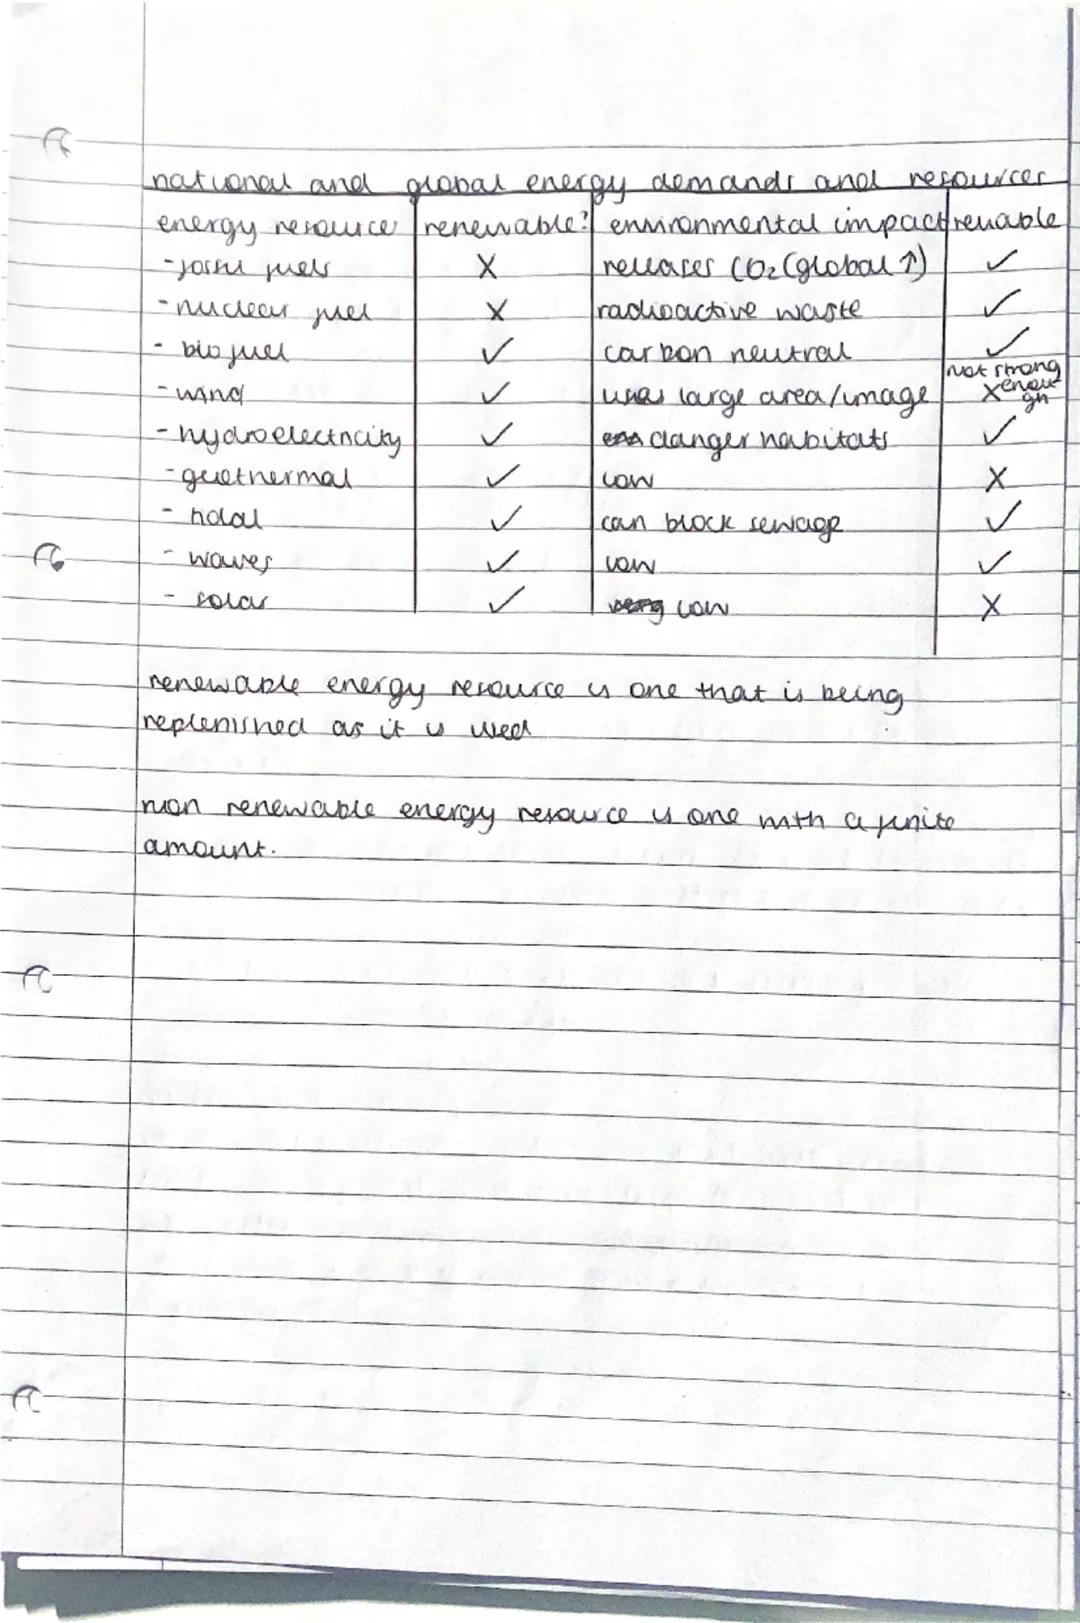 national and global energy demands and resources
energy resource renewable? environmental impact reliable
- fossil fuels X releases CO2 (global ↑) ✓
- nuclear fuel X radioactive waste ✓
- bio fuel ✓ carbon neutral ✓
- wind ✓ uses large area/image X not strong enough
- hydroelectricity ✓ danger habitats ✓
- geothermal ✓ low X
- tidal ✓ can block sewage ✓
- waves ✓ low ✓
- solar ✓ very low X
renewable energy resource is one that is being
replenished as it is used
non renewable energy resource is one with a finite
amount.